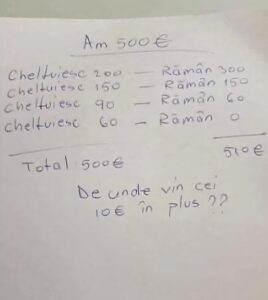 Am 500 €
Cheltuiesc 200 — Rămân 300
Cheltuiesc 150 — Rămân 150
Cheltuiesc 90 — Rămân 60
Cheltuiesc 60 — Rămân 0
Total 500€ 510€
De unde vin cei
10€ în plus ??